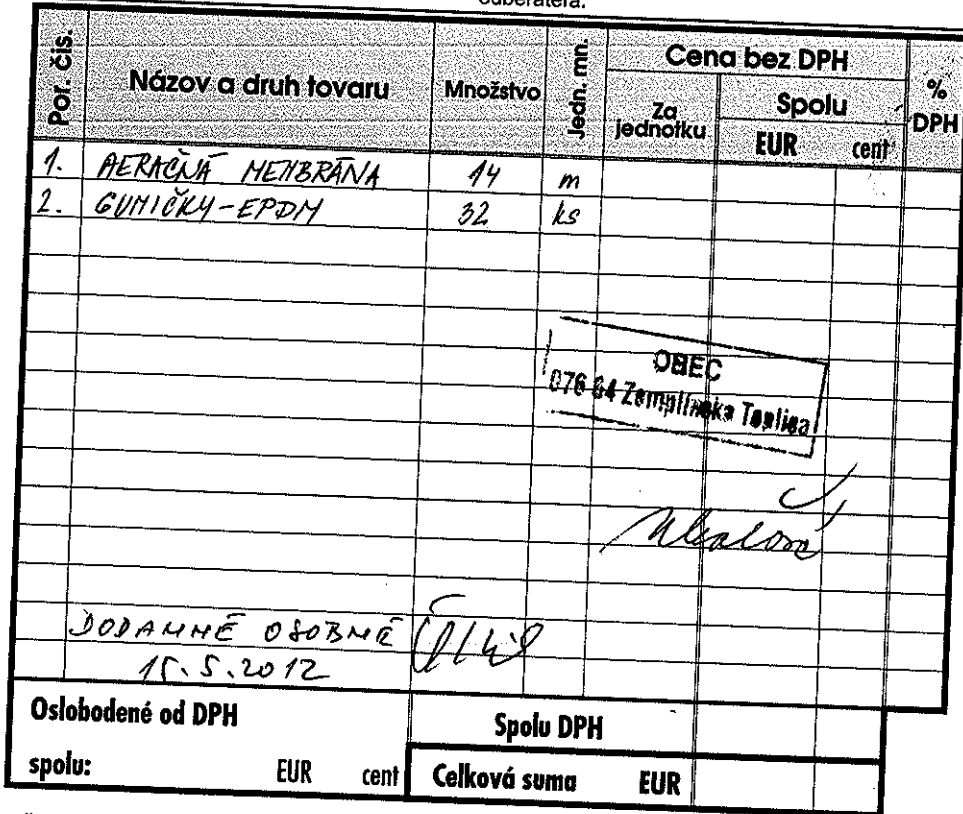 odberateľa.
Por. čís. Názov a druh tovaru Množstvo Jedn. mn. Cena bez DPH % DPH
Za jednotku Spolu
EUR cent
1. AERAČNÁ MEMBRÁNA 14 m
2. GUMIČKY-EPDM 32 ks
OBEC
076 64 Zemplínska Teplica
DODANNÉ OSOBNE
15.5.2012
Oslobodené od DPH Spolu DPH
spolu: EUR cent Celková suma EUR